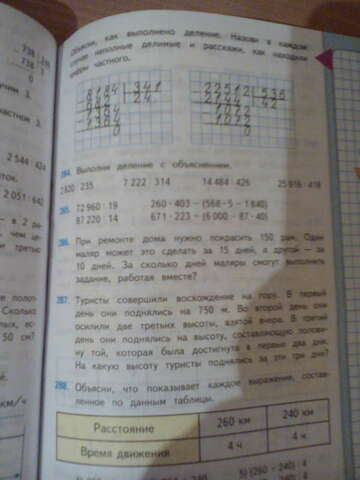 Объясни, как выполнено деление. Назови в каждом
случае неполные делимые и расскажи, как находили
цифры частного.
8184 341
682 24
1364
1364
0
22512 536
2144 42
1072
1072
0
284. Выполни деление с объяснением.
2 820 : 235 7 222 : 314 14 484 : 426 25 916 : 418
285. 72 960 : 19 260 · 403 − (568 · 5 − 1 840)
87 220 : 14 671 · 223 − (6 000 − 87 · 40)
286. При ремонте дома нужно покрасить 150 рам. Один
маляр может это сделать за 15 дней, а другой — за
10 дней. За сколько дней маляры смогут выполнить
задание, работая вместе?
287. Туристы совершили восхождение на гору. В первый
день они поднялись на 750 м. Во второй день они
осилили две третьих высоты, взятой вчера. В третий
день они поднялись на высоту, составляющую полови-
ну той, которая была достигнута в первые два дня.
На какую высоту туристы поднялись за эти три дня?
288. Объясни, что показывает каждое выражение, состав-
ленное по данным таблицы.
Расстояние 260 км 240 км
Время движения 4 ч 4 ч
5) (260 − 240) : 4
738
738
0
частном 3.
2 544 : 424
2 051 : 640
в 2 ра-
чем це-
третью
полот-
Сколько
50 см?
км/ч